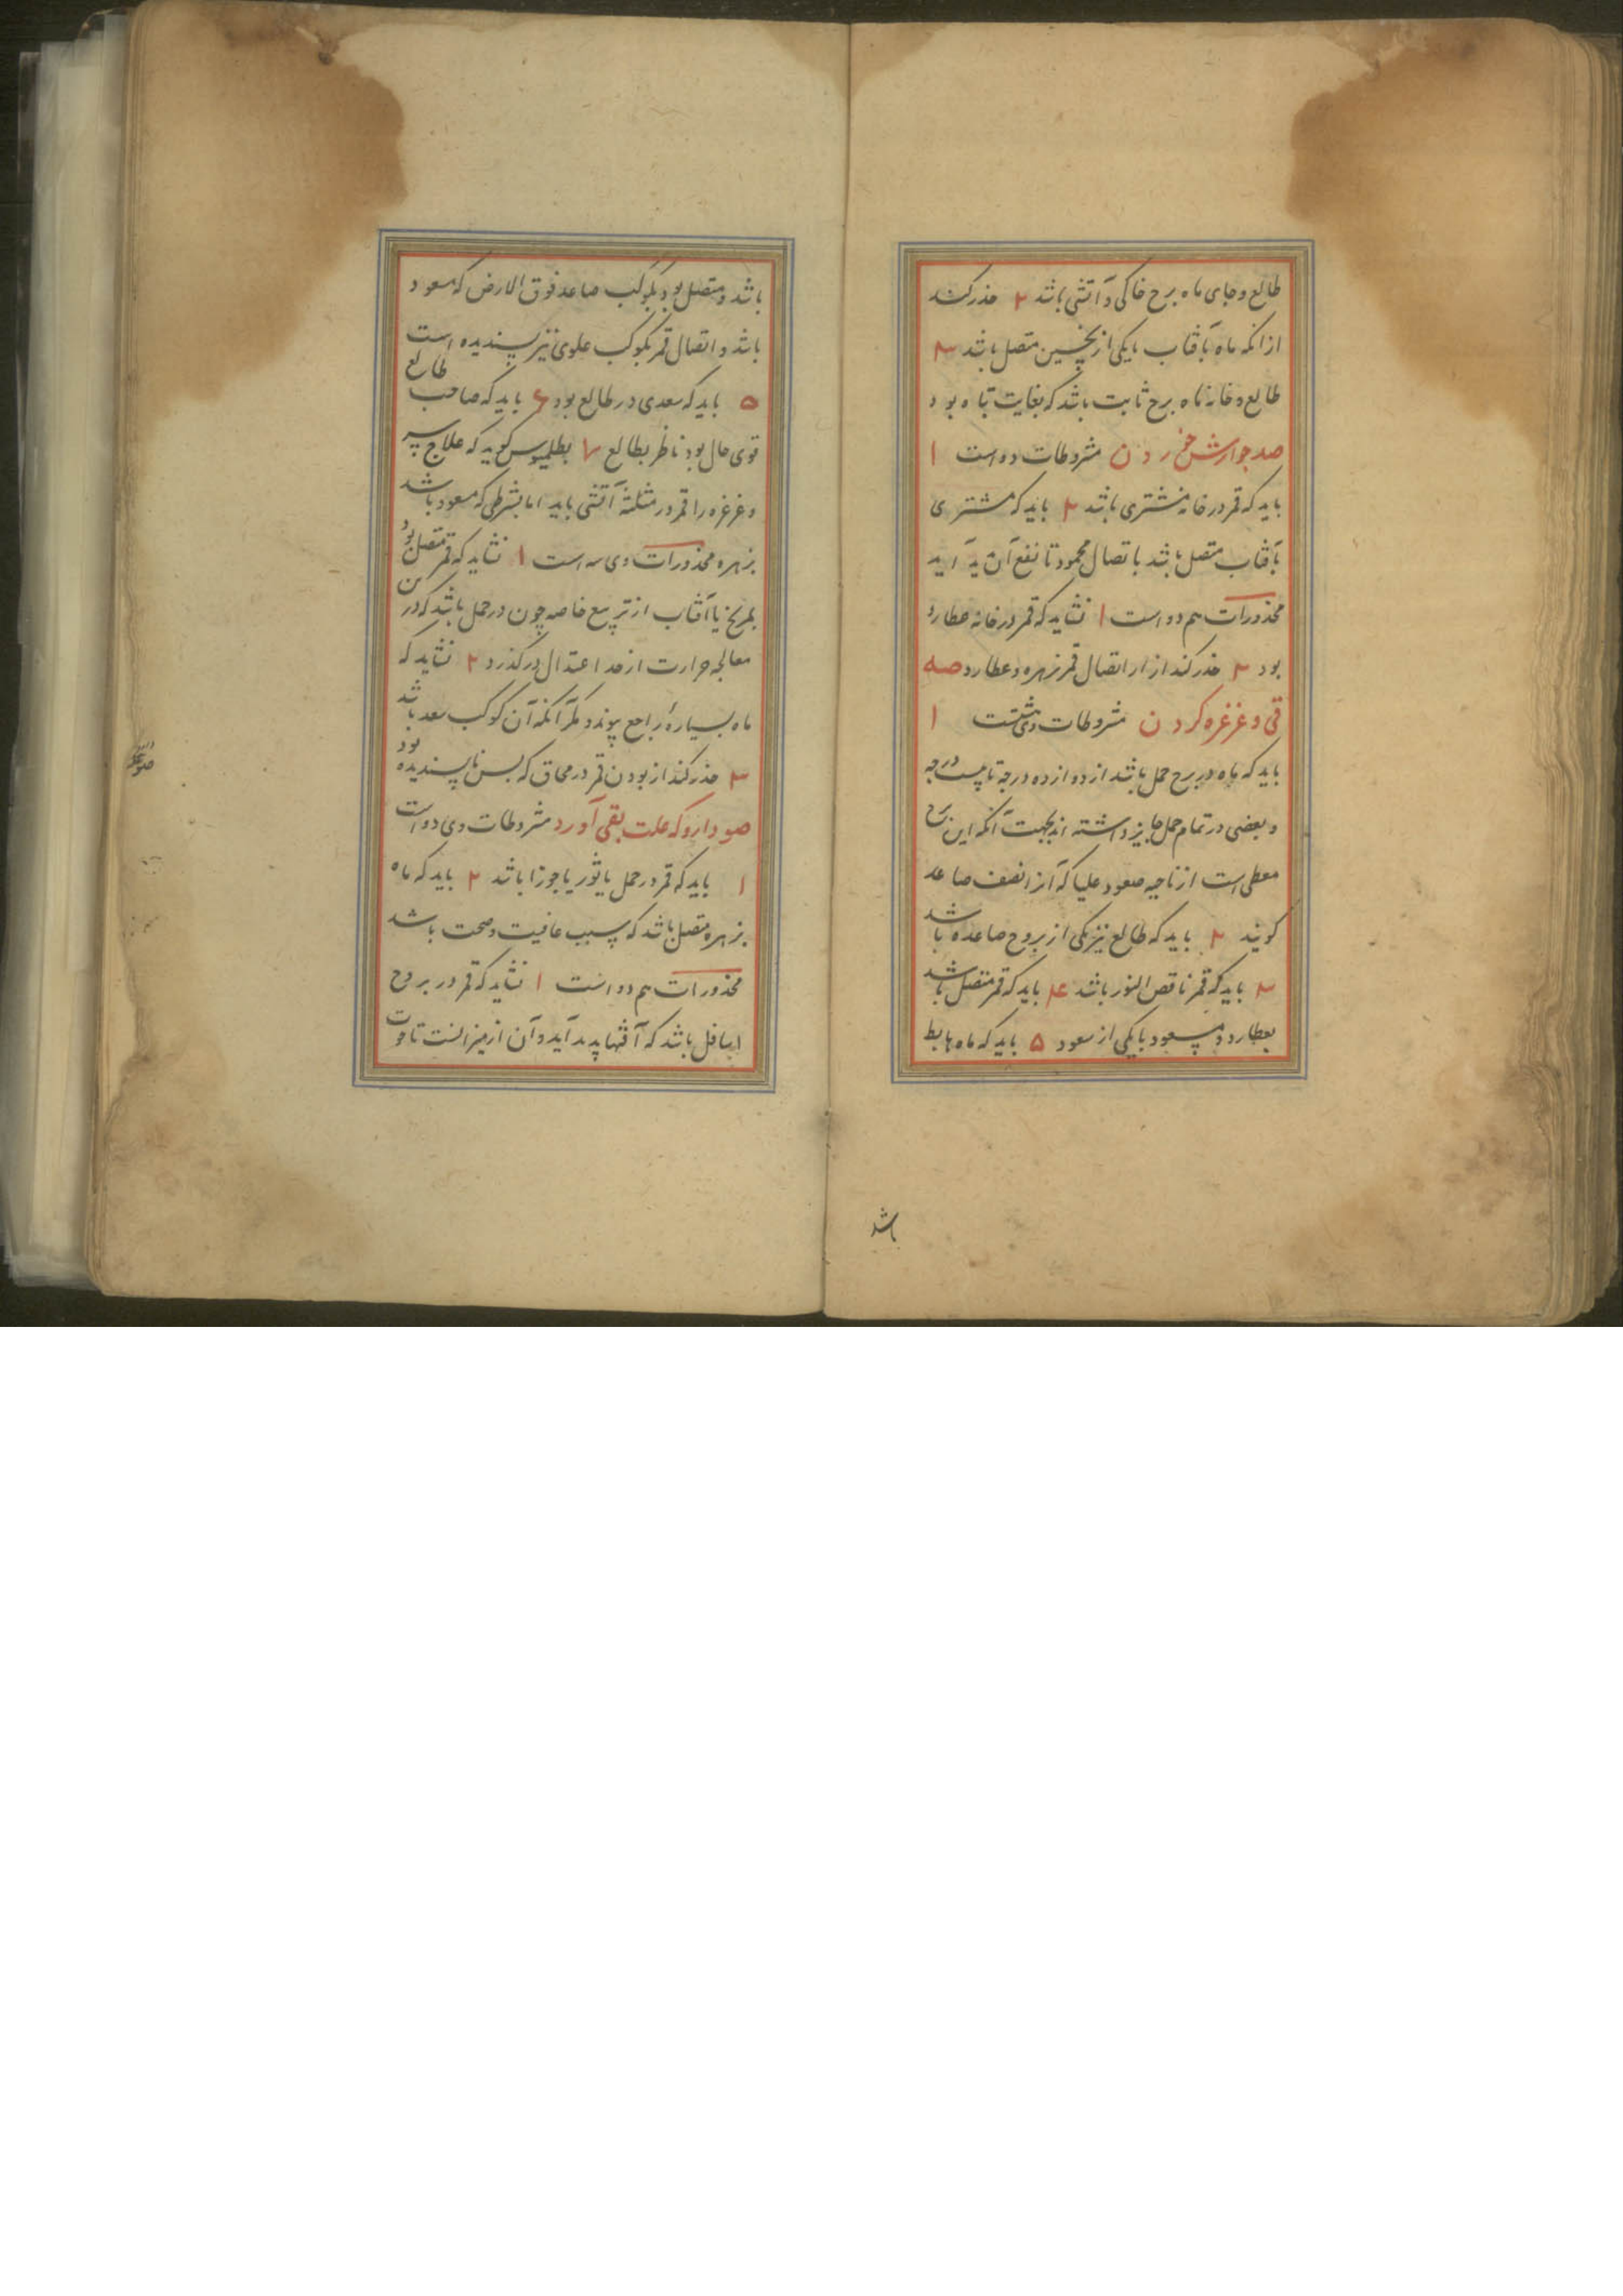 طالع و جای ماه برج خاکی و آتشی باشد ۲ حذر کنند
از آنکه ماه بآفتاب یا یکی از نحسین متصل باشد ۳
طالع و خانه ماه برج ثابت باشد که بغایت تباه بود
صد جوارش خوردن مشروطات دو است ۱
باید که قمر در خانه مشتری باشد ۲ باید که مشتری
بآفتاب متصل باشد باتصال محمود تا نفع آن پد آید
محذورات هم دو است ۱ نشاید که قمر در خانه عطارد
بود ۲ حذر کند از اتصال قمر بزهره و عطارد صه
قی و غرغره کردن مشروطات وی ۱
باید که ماه در برج حمل باشد از دوازده درجه تا بیست درجه
و بعضی در تمام حمل جایز داشته اند بجهت آنکه این برج
معطی است از ناحیه صعود علیا که آنرا نصف صاعد
کویند ۲ باید که طالع نیز یکی از بروج صاعده باشد
۳ باید که قمر ناقص النور باشد ۴ باید که قمر متصل باشد
بعطارد مسعود یا یکی از سعود ۵ باید که ماه هابط
باشد
باشد و متصل بود بکوکب صاعد فوق الارض که مسعود
باشد و اتصال قمر بکوکب علوی نیز پسندیده است
۵ باید که سعدی در طالع بود ۶ باید که صاحب طالع
قوی حال بود ناظر بطالع ۷ بطلمیوس کوید که علاج سر
و غرغره را قمر در مثلثه آتشی باید اما بشرطی که مسعود باشد
بزهره محذورات وی سه است ۱ نشاید که قمر متصل بود
بمریخ یا آفتاب از تربیع خاصه چون در حمل باشد که در
معالجه حرارت از حد اعتدال درکذرد ۲ نشاید که
ماه بسیاره راجع پیوندد مکر آنکه آن کوکب سعد باشد
۳ حذر کند از بودن قمر در محاق که بس ناپسندیده بود
صو دارو که علت بقی آورد مشروطات وی دو است
۱ باید که قمر در حمل یا ثور یا جوزا باشد ۲ باید که ماه
بزهره متصل باشد که سبب عافیت و صحت باشد
محذورات هم دو است ۱ نشاید که قمر در بروج
اسافل باشد که آفتها پدید آید و آن از میزانست تا حوت